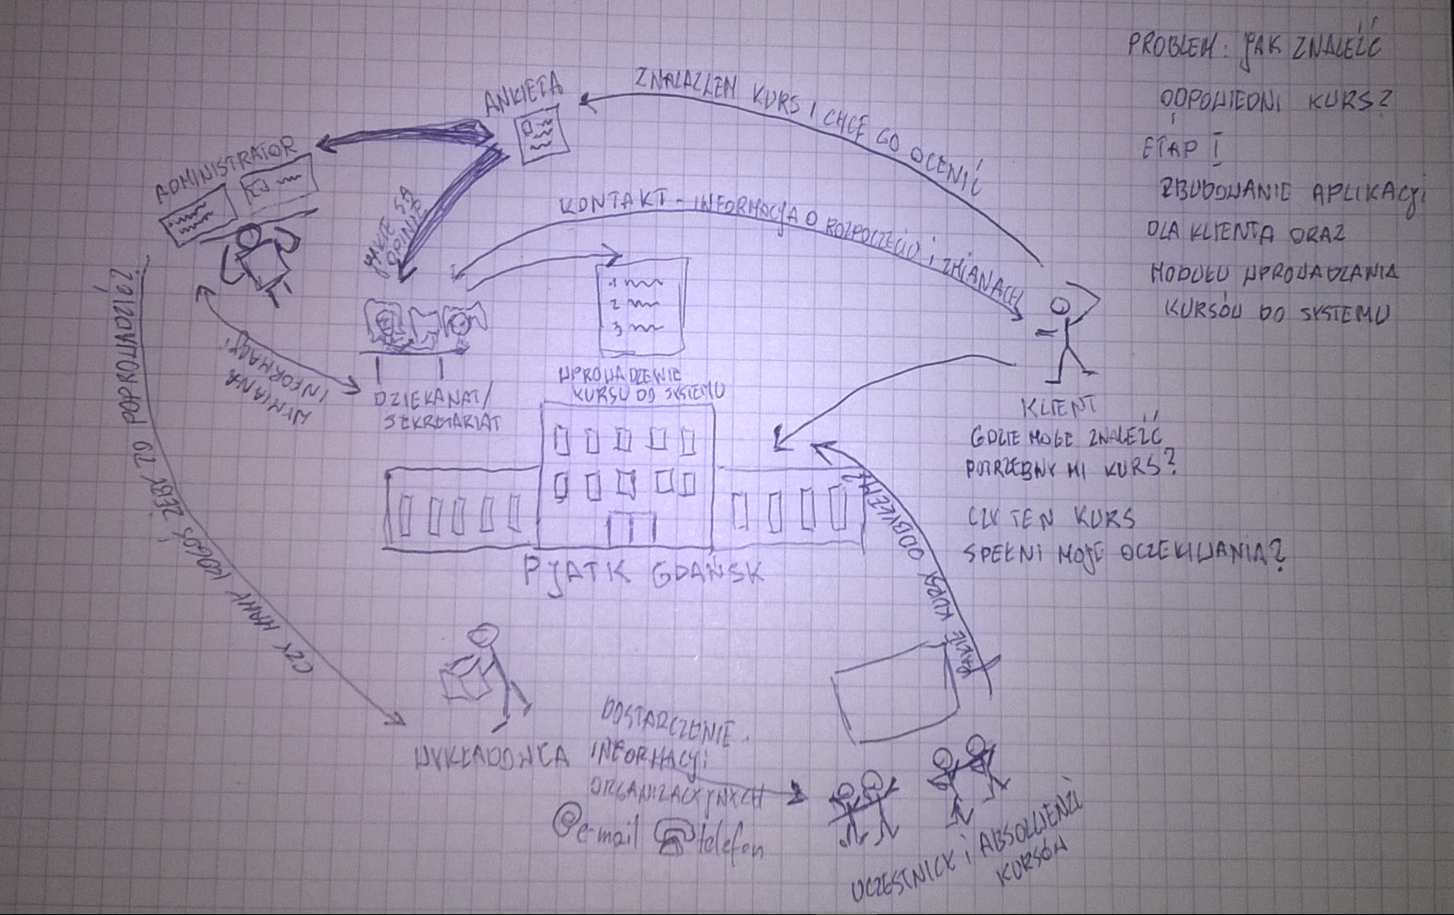 PROBLEM: JAK ZNALEŹĆ
ODPOWIEDNI KURS?
ETAP I
ZBUDOWANIE APLIKACJI
DLA KLIENTA ORAZ
MODUŁU WPROWADZANIA
KURSÓW DO SYSTEMU
ANKIETA
ZNALAZŁEM KURS I CHCĘ GO OCENIĆ
ADMINISTRATOR
JAKIE SĄ
OPINIE
KONTAKT - INFORMACJA O ROZPOCZĘCIU I ZMIANACH
1
2
3
WPROWADZENIE
KURSU DO SYSTEMU
WYMIANA
INFORMACJI
DZIEKANAT/
SEKRETARIAT
KLIENT
GDZIE MOGĘ ZNALEŹĆ
POTRZEBNY MI KURS?
CZY TEN KURS
SPEŁNI MOJE OCZEKIWANIA?
PJATK GDAŃSK
CZY MAMY KOGOŚ ŻEBY TO POPROWADZIŁ?
JAKIE KURSY ODBYŁEM?
WYKŁADOWCA
DOSTARCZENIE
INFORMACJI
ORGANIZACYJNYCH
@ e-mail telefon
UCZESTNICY I ABSOLWENCI
KURSÓW